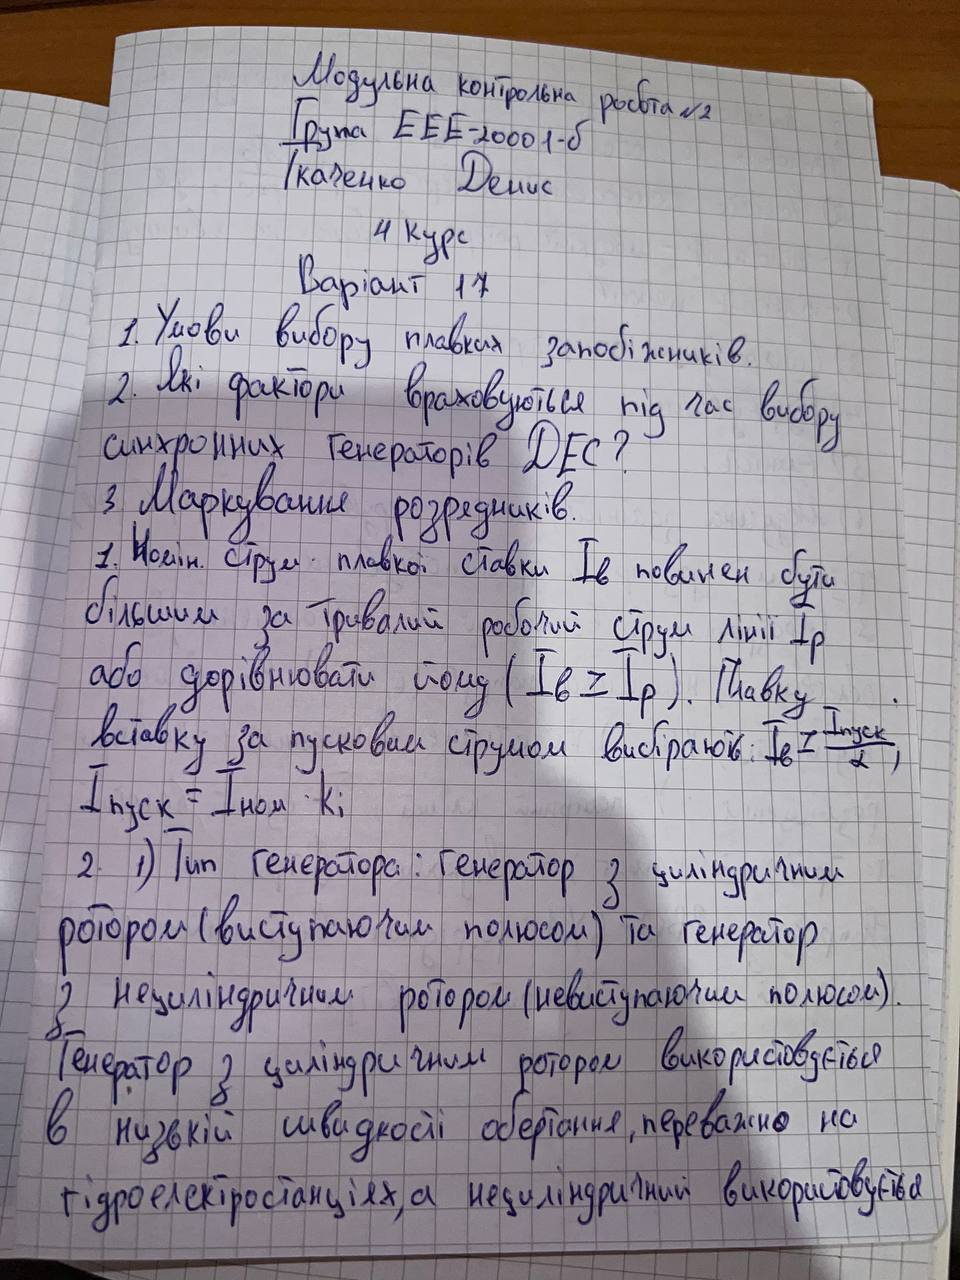 Модульна контрольна робота №2
Група ЕЕЕ-20001-б
Ткаченко Денис
4 курс
Варіант 17
1. Умови вибору плавких запобіжників.
2. Які фактори враховуються під час вибору
синхронних генераторів DEC?
3 Маркування розрядників.
1. Номін. струм плавкої ставки Iв повинен бути
більшим за тривалий робочий струм лінії Iр
або дорівнювати йому (Iв ≥ Iр). Плавку
вставку за пусковим струмом вибирають: Iв ≥ Iпуск/α,
Iпуск = Iном · Ki
2. 1) Тип генератора: генератор з циліндричним
ротором (виступаючим полюсом) та генератор
з нециліндричним ротором (невиступаючим полюсом).
Генератор з циліндричним ротором використовується
в низькій швидкості обертання, переважно на
гідроелектростанціях, а нециліндричний використовується